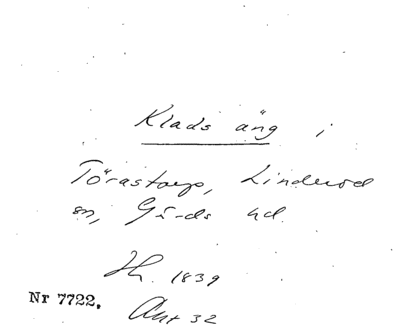 Klads äng i
Törastorp, Linderöd
sn, Gärds hd.
Hh. 1839
Nr 7722.
Akt 32